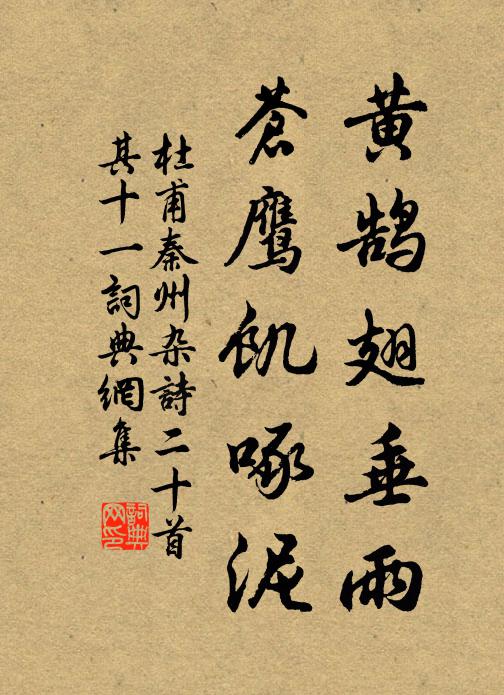 黄鹄翅垂雨
苍鹰饥啄泥
杜甫秦州杂詩二十首
其十一詞典網集
詞典
网印